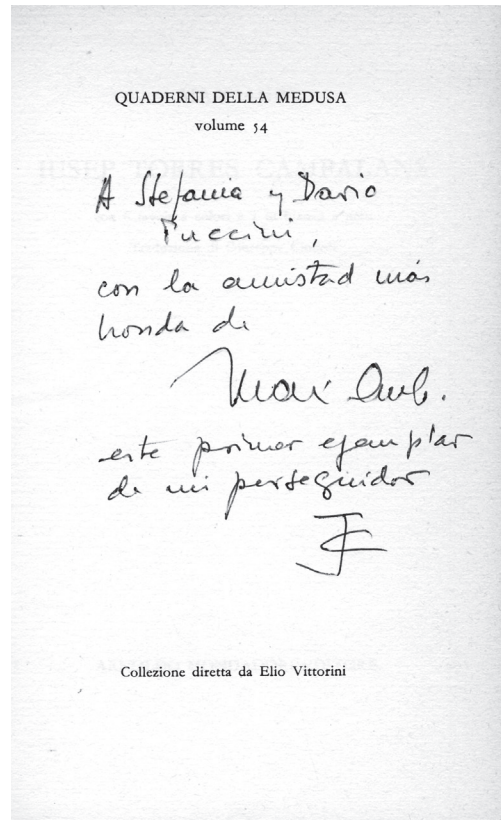 QUADERNI DELLA MEDUSA
volume 54
JUSEP TORRES CAMPALANS
A Stefania y Dario
Puccini,
con la amistad más
honda de
Max Aub.
este primer ejemplar
de mi perseguidor
JC
Collezione diretta da Elio Vittorini